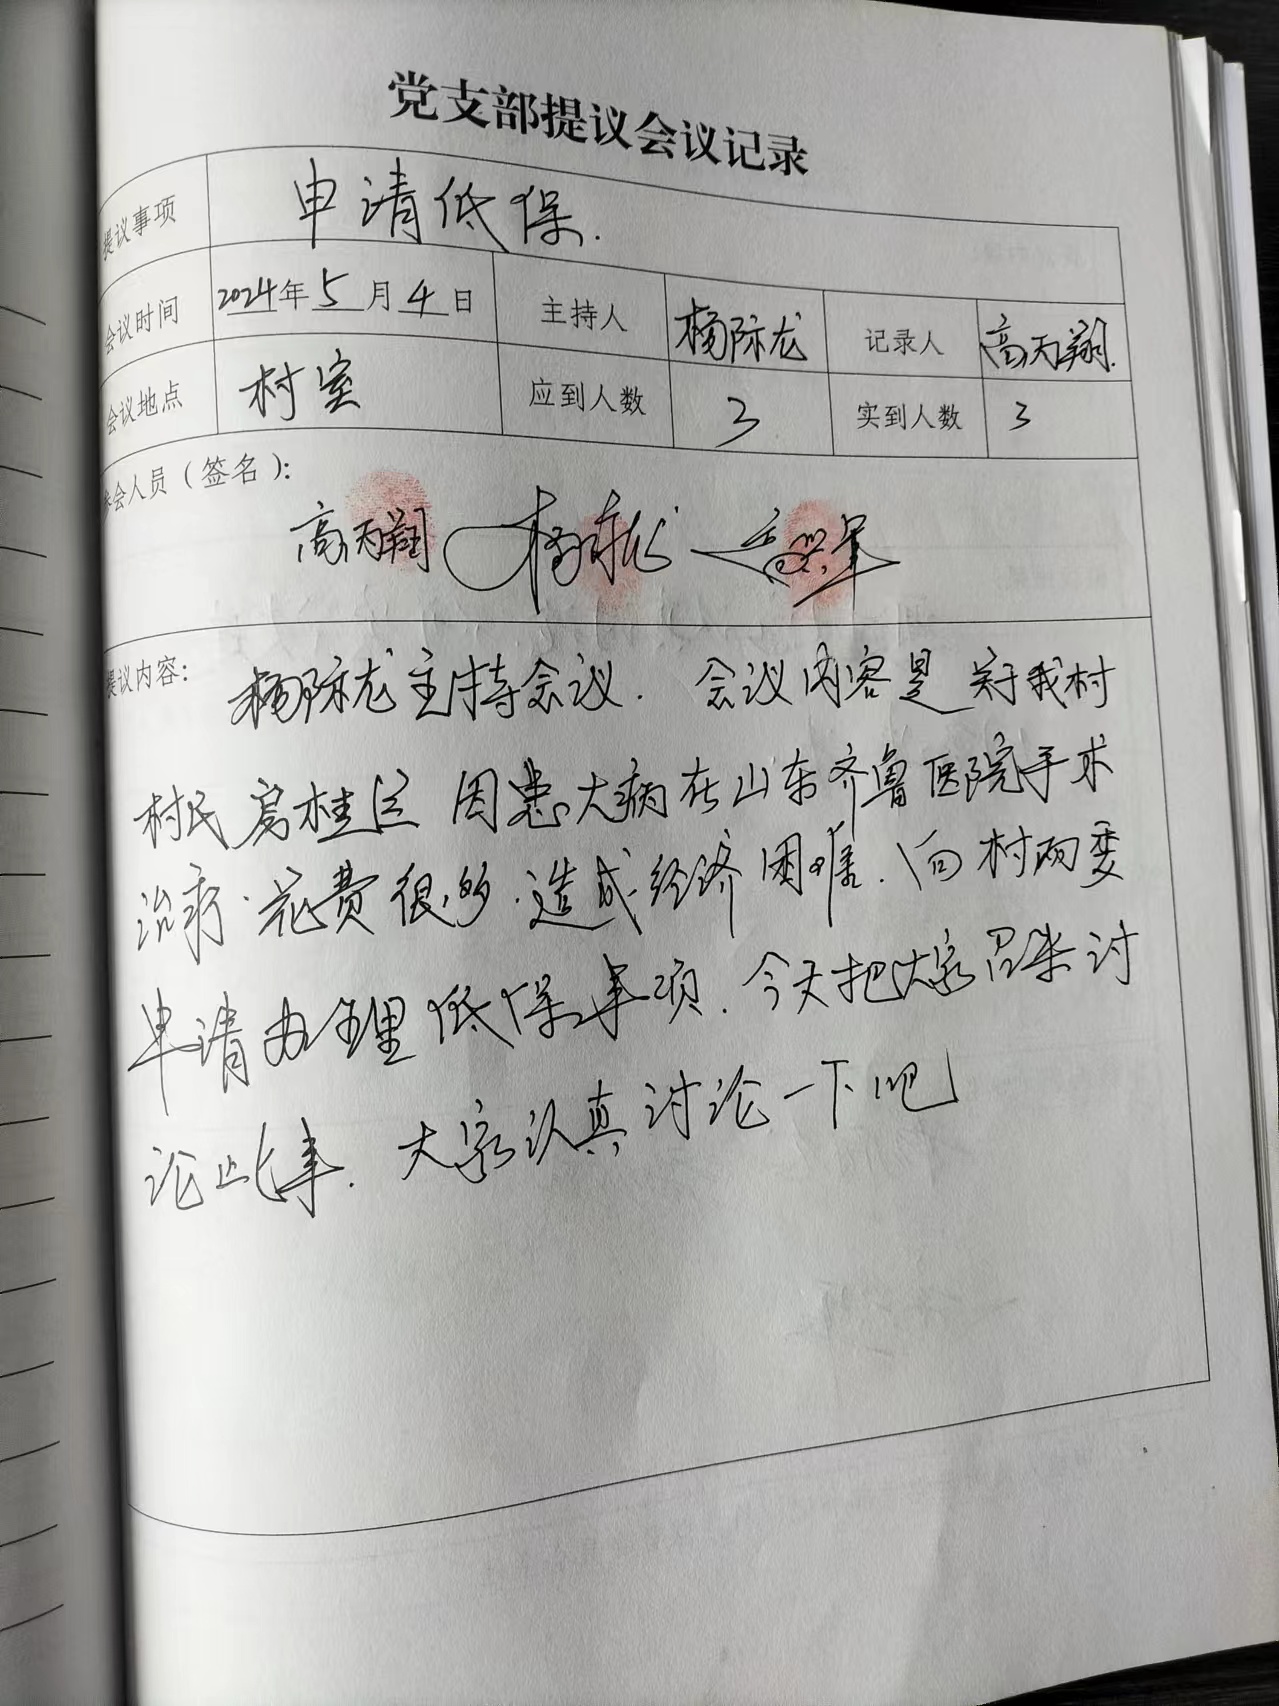 党支部提议会议记录
提议事项 申请低保.
会议时间 2024年5月4日 主持人 杨际龙 记录人 高天翔.
会议地点 村室 应到人数 3 实到人数 3
参会人员（签名）：
高天翔 杨际龙
提议内容： 杨际龙主持会议. 会议内容是关于我村
村民 桂 因患大病在山东齐鲁医院手术
治疗.花费很多.造成经济困难.向村两委
申请办理低保事项.今天把大家召集讨
论此事. 大家认真讨论一下吧